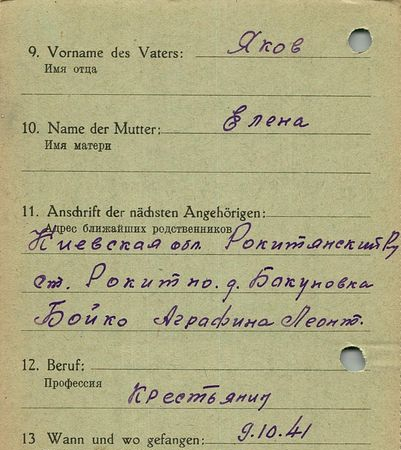 9. Vorname des Vaters: Яков
Имя отца
10. Name der Mutter: Елена
Имя матери
11. Anschrift der nächsten Angehörigen:
Адрес ближайших родственников
Киевская обл. Рокитянский
ст. Рокитно. д. Бакуновка
Бойко Аграфина Леонт.
12. Beruf:
Профессия Крестьянин
13 Wann und wo gefangen: 9.10.41